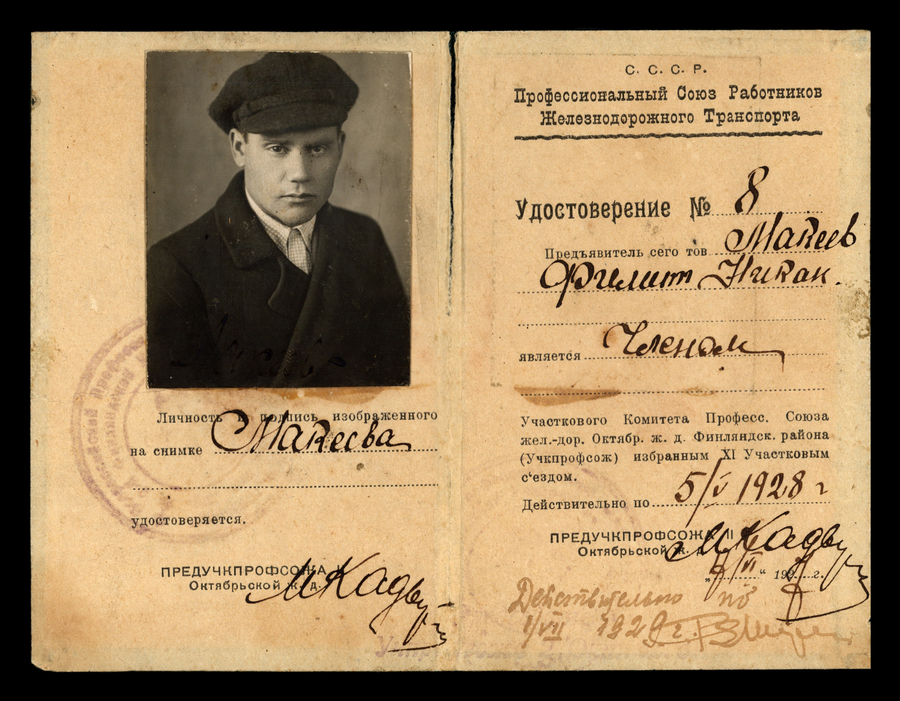 Личность и подпись изображенного
на снимке Макеева
удостоверяется.
ПРЕДУЧКПРОФСОЖА
Октябрьской ж. д.
С. С. С. Р.
Профессиональный Союз Работников
Железнодорожного Транспорта
Удостоверение № 8
Предъявитель сего тов Макеев
Филипп Никан.
является Членом
Участкового Комитета Професс. Союза
жел.-дор. Октябр. ж. д. Финляндск. района
(Учкпрофсож) избранным XI Участковым
с‘ездом.
Действительно по 5/V 1928 г
ПРЕДУЧКПРОФСОЖА
Октябрьской ж.
Действительно по
1/VII 1929 г.